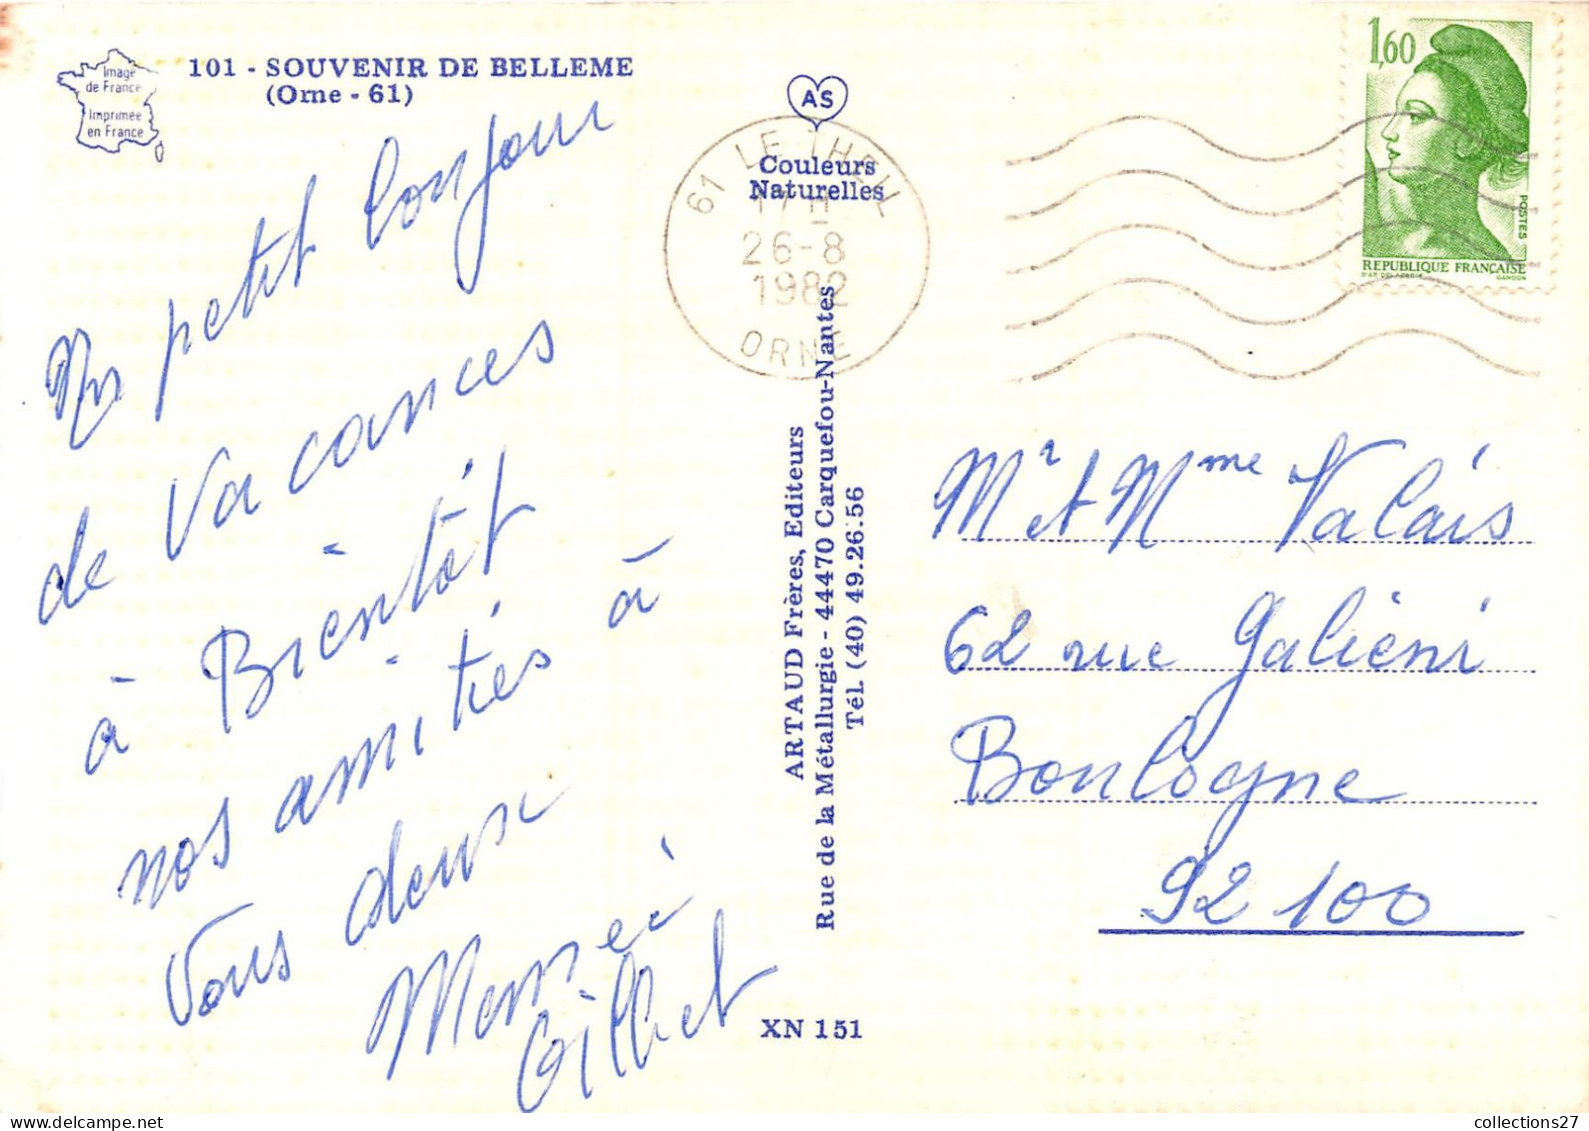 Image
de France
Imprimée
en France
101 - SOUVENIR DE BELLEME
(Orne - 61)
Un petit bonjour
de Vacances
à Bientôt
nos amitiés à
Vous deux
Gilbert
AS
Couleurs
Naturelles
61 LE THEIL
17 H
26-8
1982
ORNE
ARTAUD Frères, Editeurs
Rue de la Métallurgie - 44470 Carquefou-Nantes
Tél. (40) 49.26.56
XN 151
1,60
POSTES
REPUBLIQUE FRANÇAISE
D'AP. DELACROIX
GANDON
Mr et Mme Valais
62 rue Galiéni
Boulogne
92 100
collections27